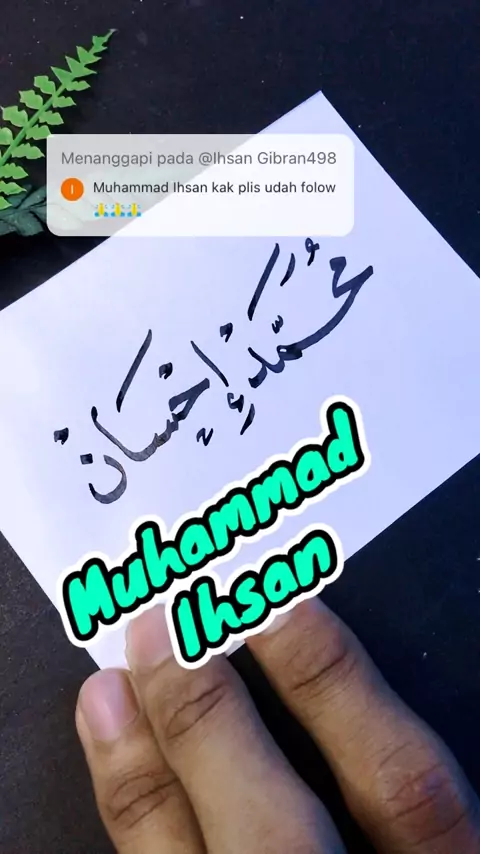 Menanggapi pada @Ihsan Gibran498
Muhammad Ihsan kak plis udah folow
🙏🙏🙏
مُحَمَّد إِحْسَانْ
Muhammad
Ihsan